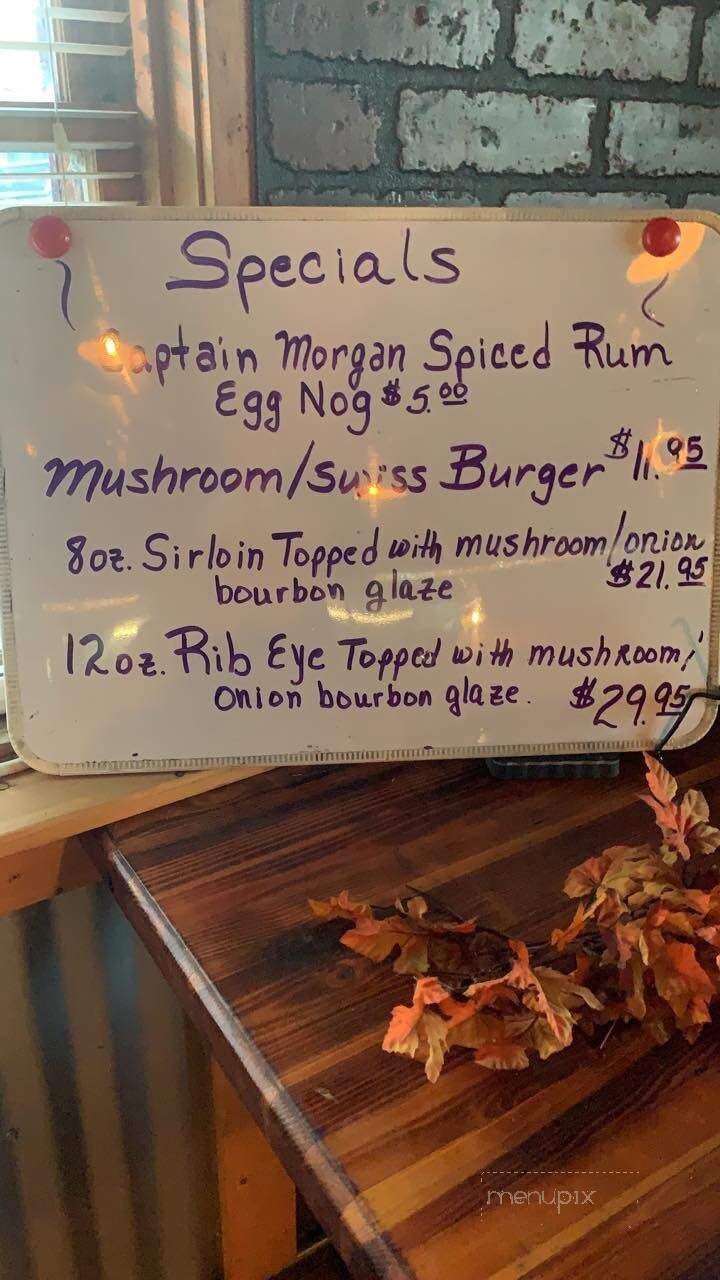 Specials
Captain Morgan Spiced Rum
Egg Nog $5.00
Mushroom/Swiss Burger $11.95
8oz. Sirloin Topped with mushroom/onion
bourbon glaze $21.95
12oz. Rib Eye Topped with mushroom/
onion bourbon glaze. $29.95
menupix